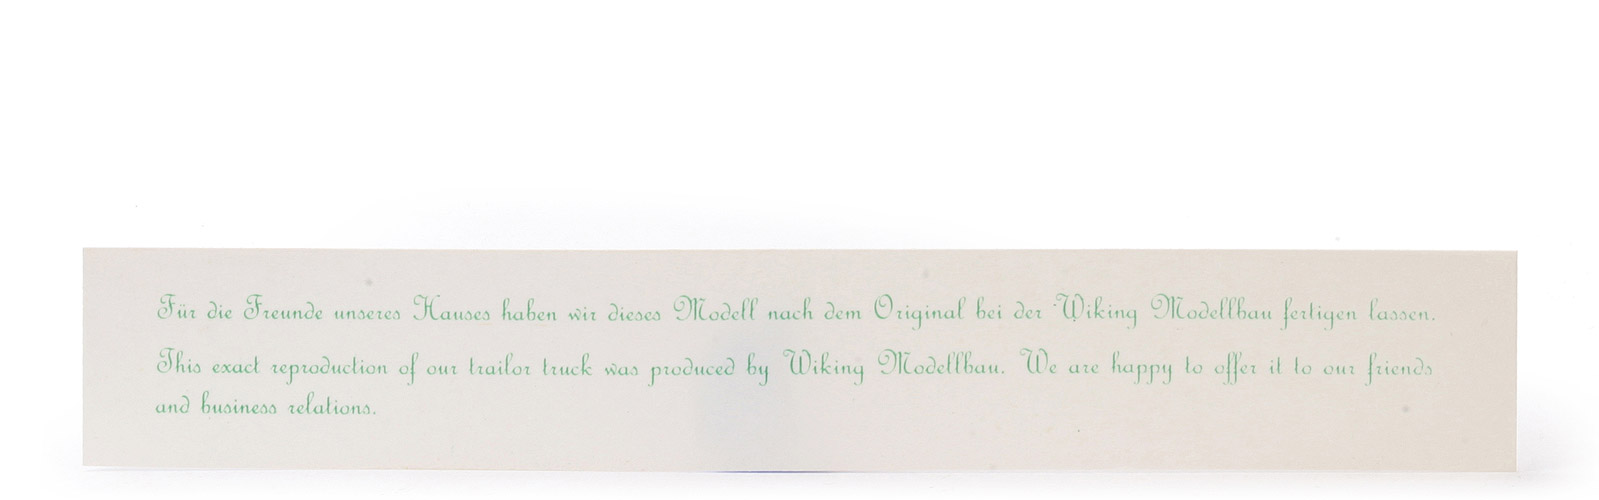 Für die Freunde unseres Hauses haben wir dieses Modell nach dem Original bei der Wiking Modellbau fertigen lassen.
This exact reproduction of our trailor truck was produced by Wiking Modellbau. We are happy to offer it to our friends
and business relations.